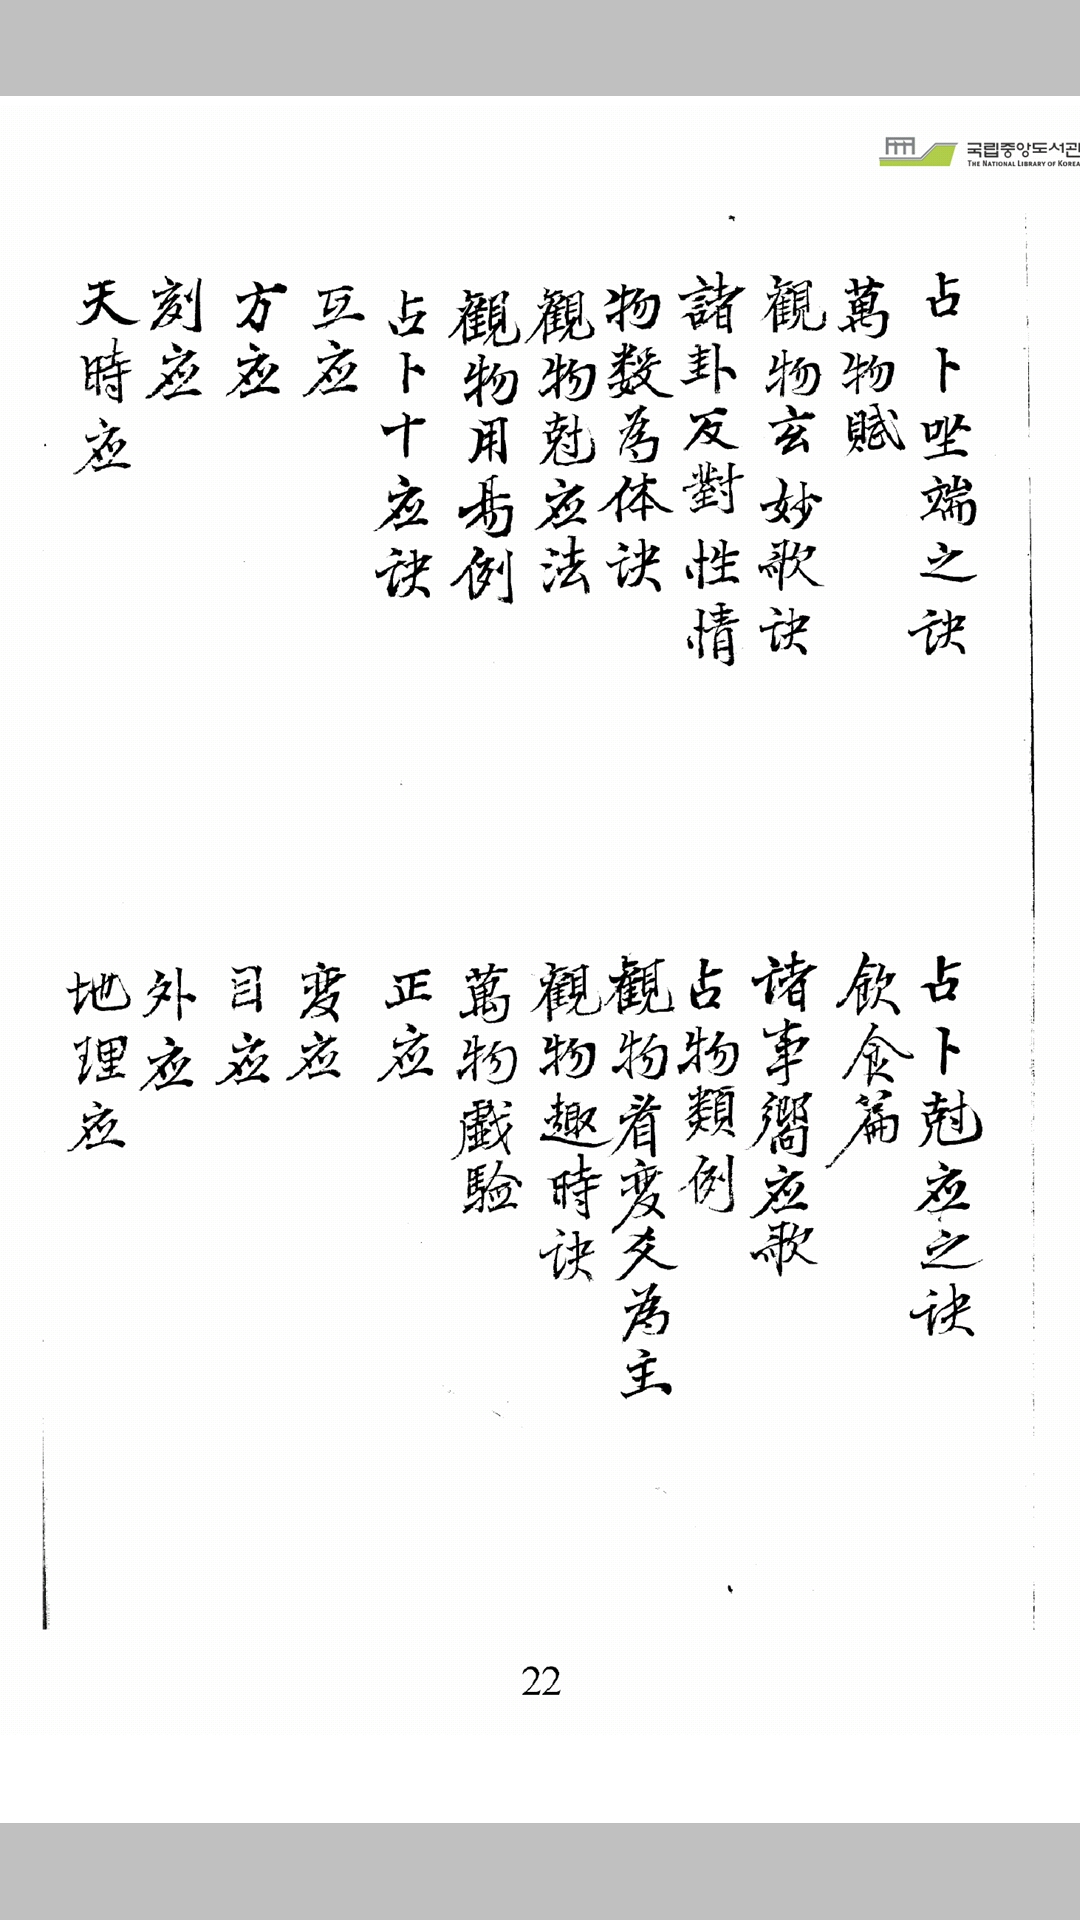 국립중앙도서관
THE NATIONAL LIBRARY OF KOREA
占卜坐端之诀
占卜尅应之诀
萬物賦
飲食篇
觀物玄妙歌诀
诸事響应歌
諸卦反對性情
占物類例
物数為体诀
觀物看变爻為主
觀物尅应法
觀物趣時诀
觀物用易例
萬物戲驗
占卜十应诀
正应
互应
变应
方应
目应
刻应
外应
天時应
地理应
22